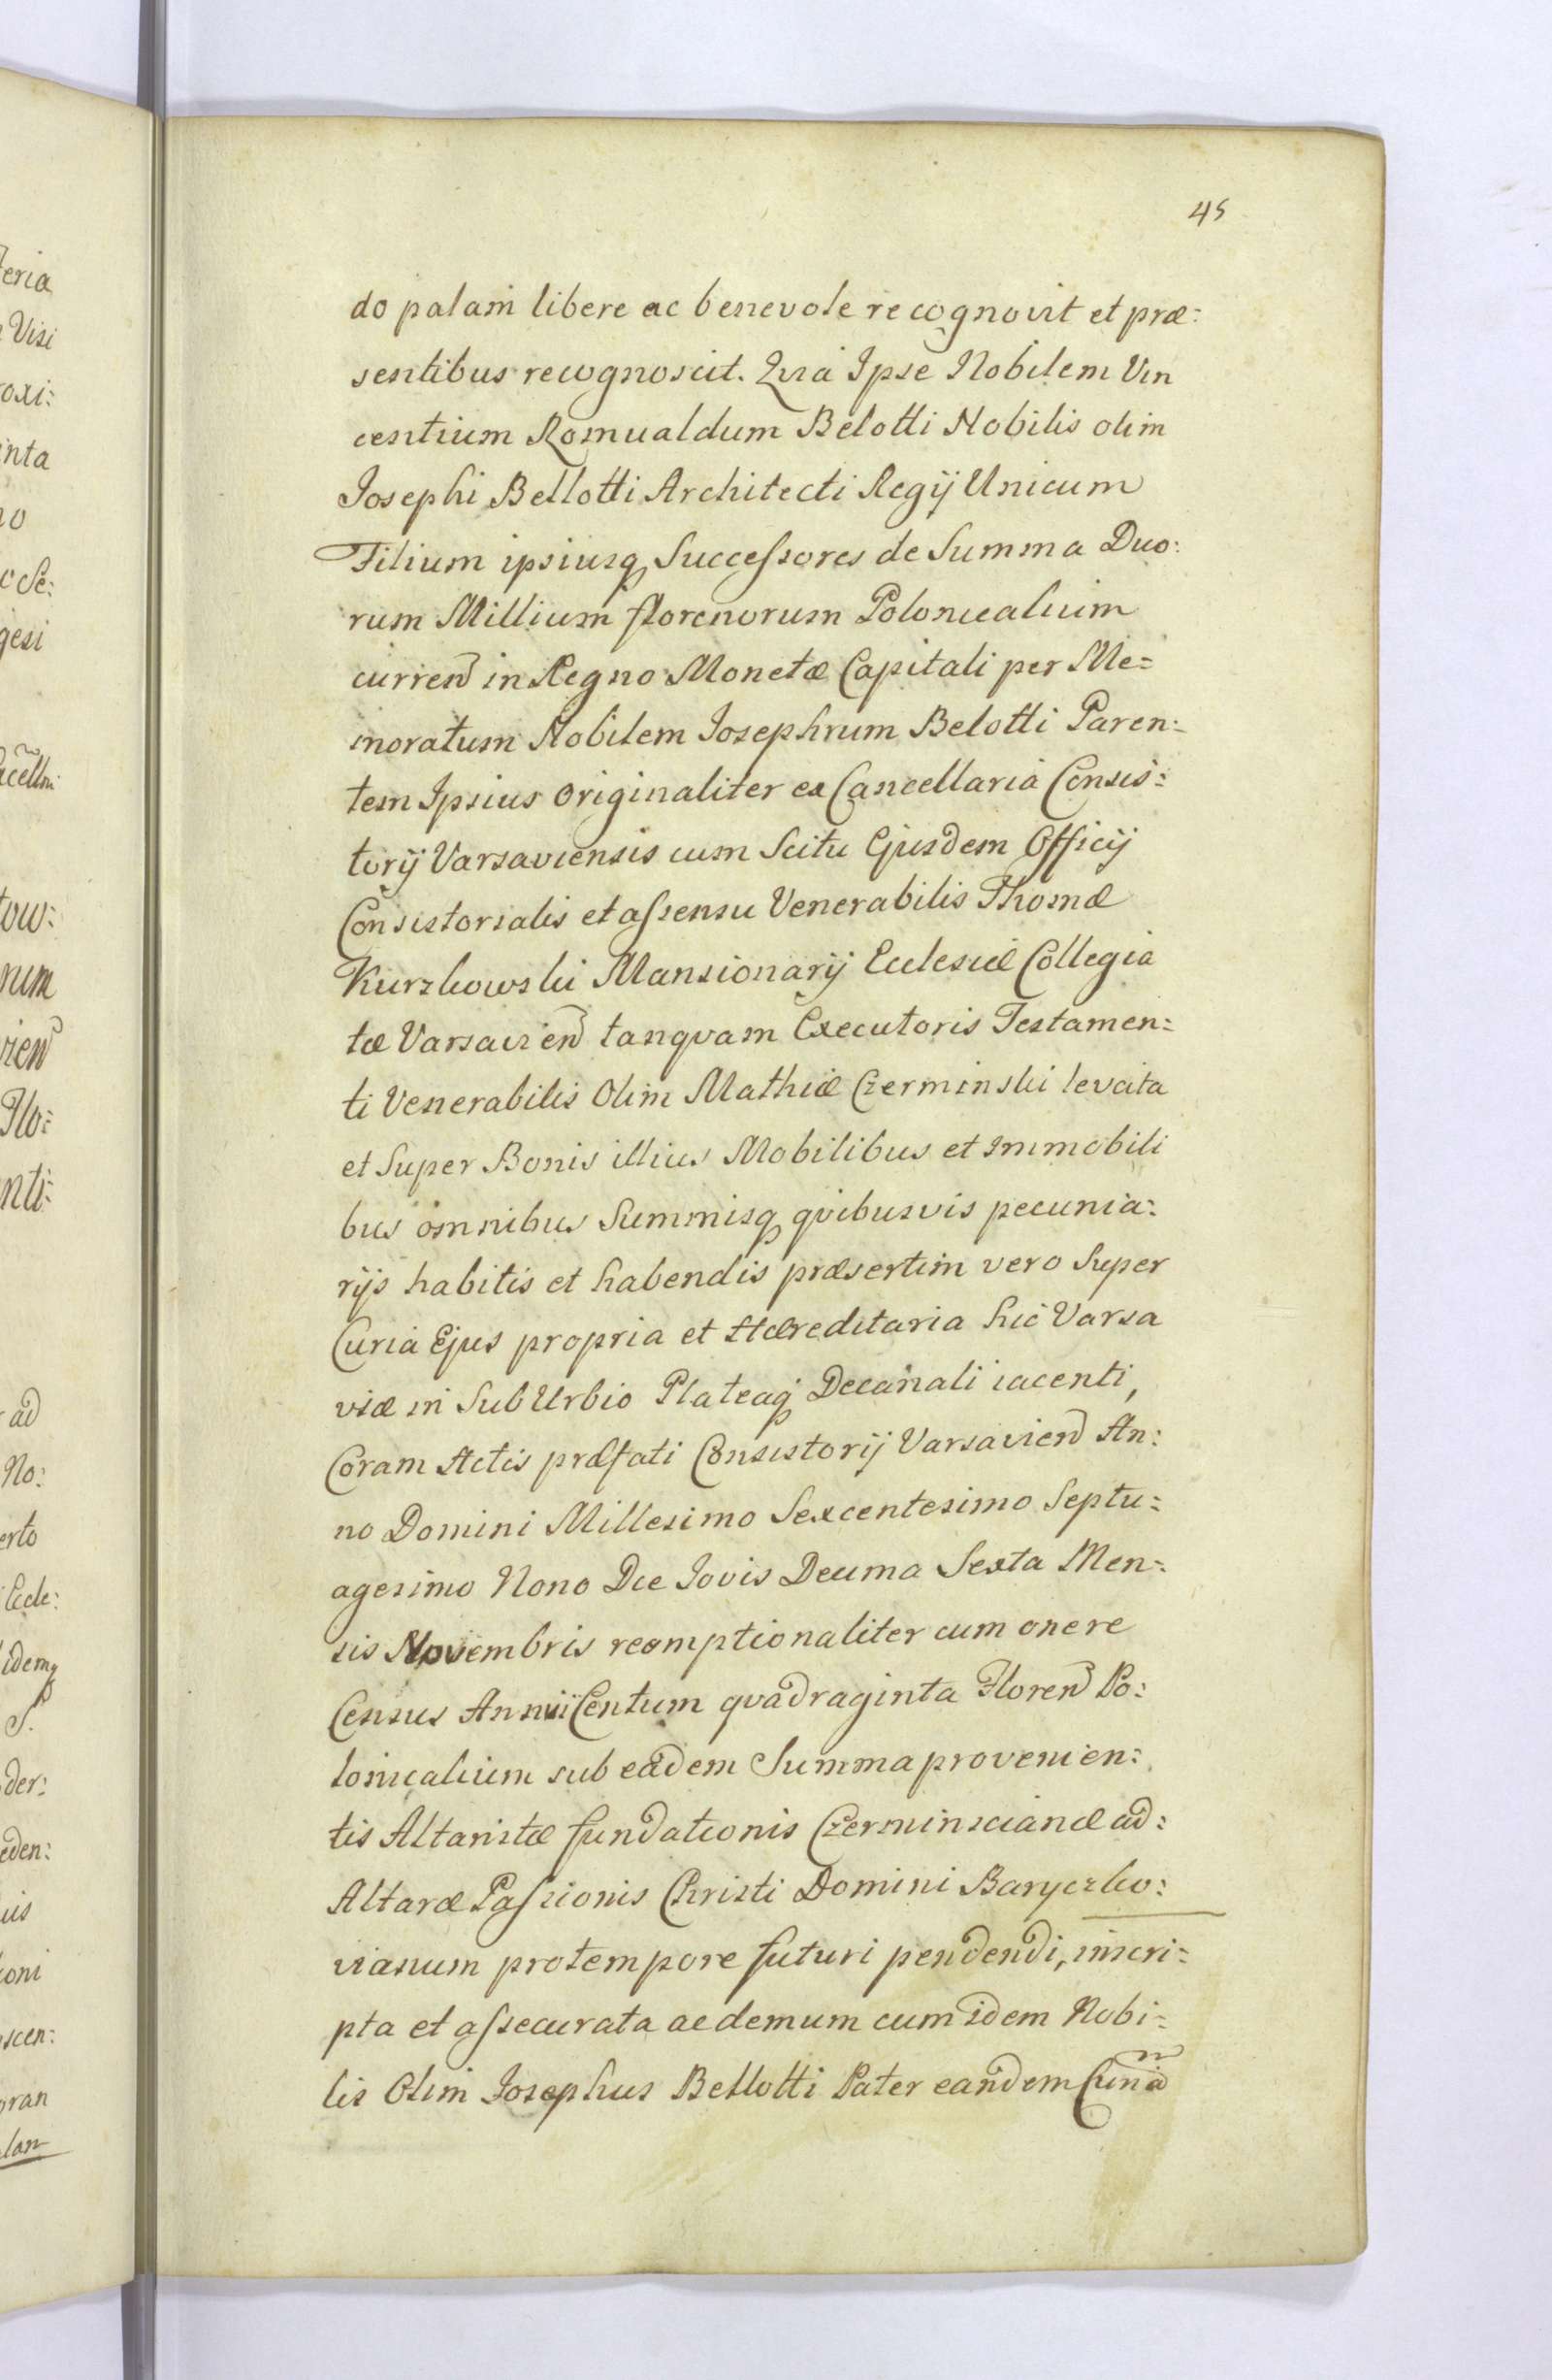 45
do palam libere ac benevole recognovit et præ:
sentibus recognoscit. Quia Ipse Nobilem Vin
centium Romualdum Belotti Nobilis olim
Josephi Bellotti Architecti Regij Unicum
Filium ipsiusq Successores de Summa Duo:
rum Millium florenorum Polonicalium
curren in Regno Monetæ Capitali per Me=
moratum Nobilem Josephum Belotti Paren=
tem Ipsius originaliter ex Cancellaria Consis:
torij Varsaviensis cum Scitu Ejusdem Officij
Consistorialis et assensu Venerabilis Thomæ
Kurzkowski Mansionarij Ecclesiæ Collegia
tæ Varsavien tanqvam Executoris Testamen=
ti Venerabilis Olim Mathiæ Czerminski levata
et Super Bonis illius Mobilibus et Immobili
bus omnibus Summisq qvibusvis pecunia:
rijs habitis et habendis præsertim vero Super
Curia Ejus propria et Hæreditaria hic Varsa
viæ in SubUrbio Plateaq Decanali iacenti,
Coram Actis præfati Consistorij Varsavien An:
no Domini Millesimo Sexcentesimo Septu=
agesimo Nono Die Jovis Decima Sexta Men:
sis Novembris reemptionaliter cum onere
Census Annui Centum qvadraginta Floren Po:
lonicalium sub eadem Summa provenien:
tis Altaristæ fundationis Czerminscianæ ad:
Altaræ Passionis Christi Domini Baryczko:
vianum protempore futuri pendendi, inscri=
pta et assecurata ac demum cum idem Nobi=
lis Olim Josephus Bellotti Pater eandem
eria
Visi
oxi:
inta
no
Se:
gesi
acelln
tow:
num
vien
Flo:
nti:
ad
No:
erto
Eccle:
idemq
S.
der:
eden:
uis
coni
scen:
oran
lan